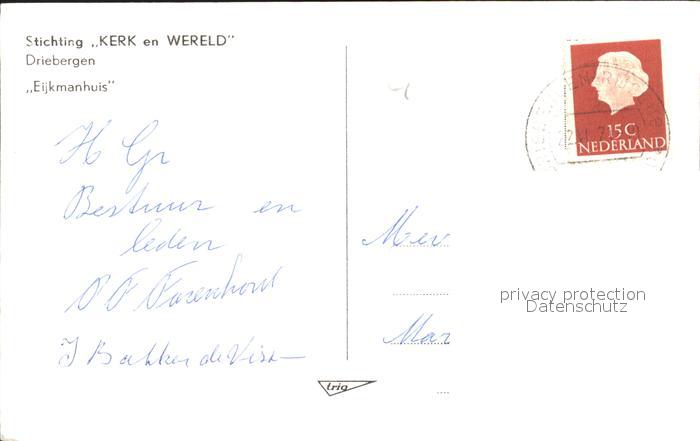 Stichting „KERK en WERELD"
Driebergen
„Eijkmanhuis"
H Gr
Bestuur en
leden
J Bakker de Vis
trig
15 C
NEDERLAND
Mev
Mar
privacy protection
Datenschutz